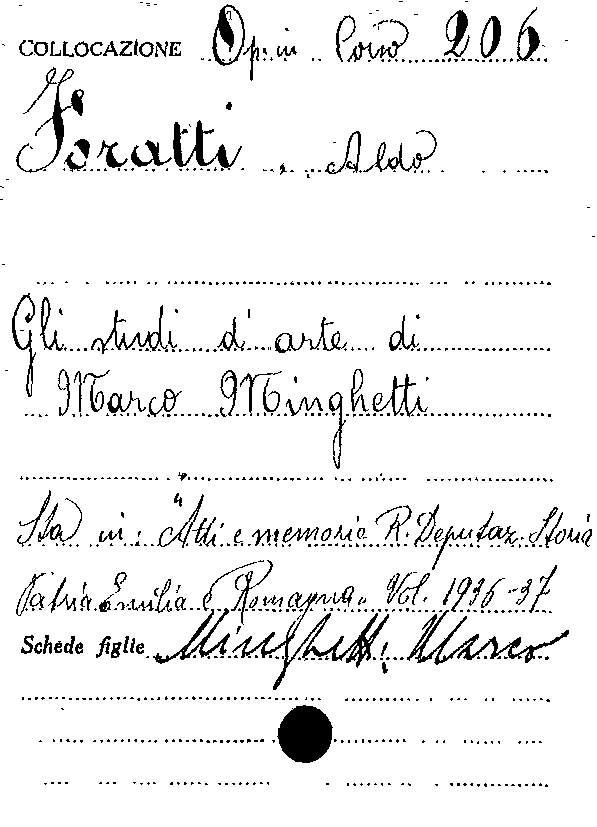 COLLOCAZIONE Op. in 206
Foratti, Aldo
Gli studi d'arte di
Marco Minghetti
Sta in: "Atti e memorie R. Deputaz. Storia
Patria Emilia e Romagna. Vol. 1936-37
Schede figlie Minghetti, Marco